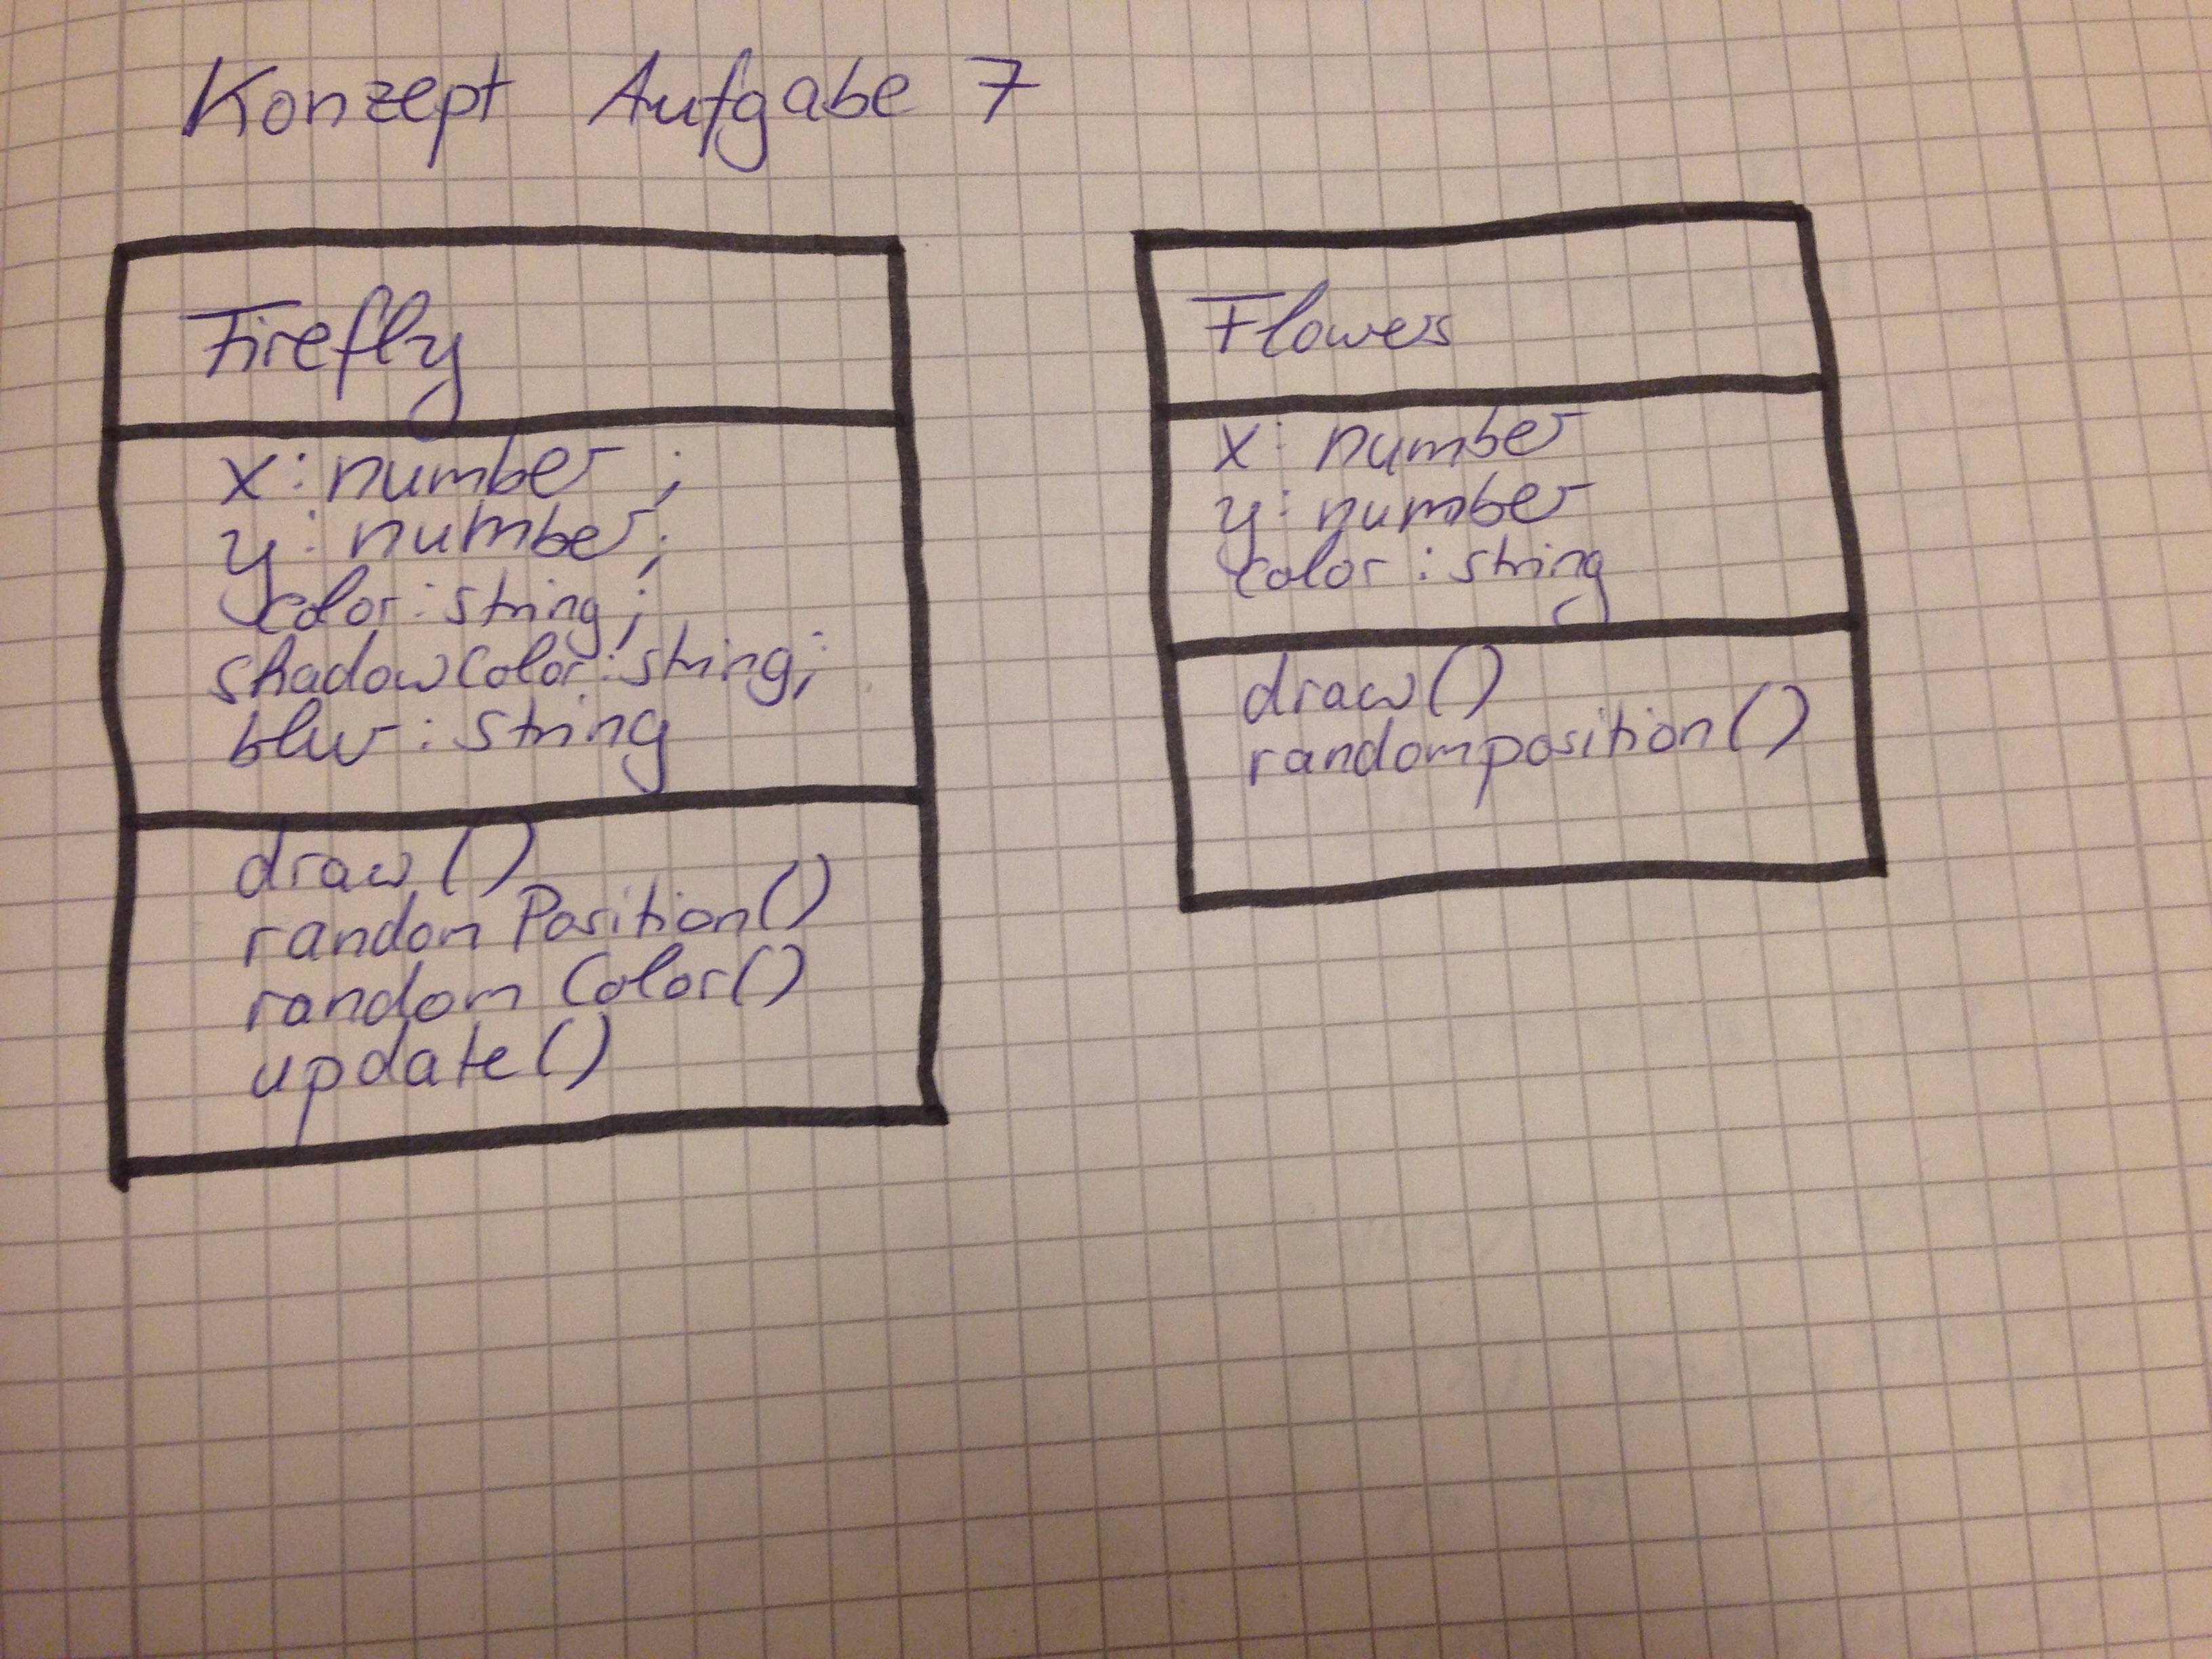 Konzept Aufgabe 7
Firefly
x: number;
y: number;
color: string;
shadowColor: string;
blur: string
draw()
random Position()
random Color()
update()
Flowers
x: number
y: number
color: string
draw()
randomposition()